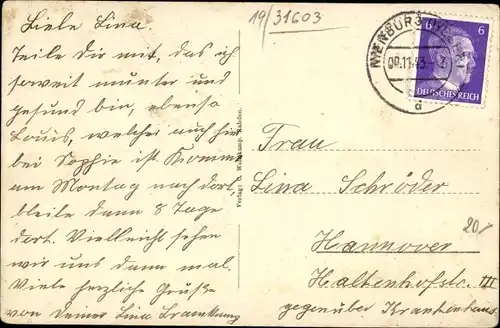 Liebe Lina.
Teile Dir mit, das ich
soweit munter und
gesund bin, ebenso
Louis, welcher auch hier
bei Sophie ist. Komme
am Montag nach dort,
bleibe dann 8 Tage
dort. Vielleicht sehen
wir uns dann mal.
Viele herzliche Grüße
von Deiner Lina
19/31603
NIENBURG
6 6
DEUTSCHES REICH
a
Verlag:
Frau
Lina Schröder
20/-
Hannover
Haltenhofstr. III
gegenüber Krankenhaus